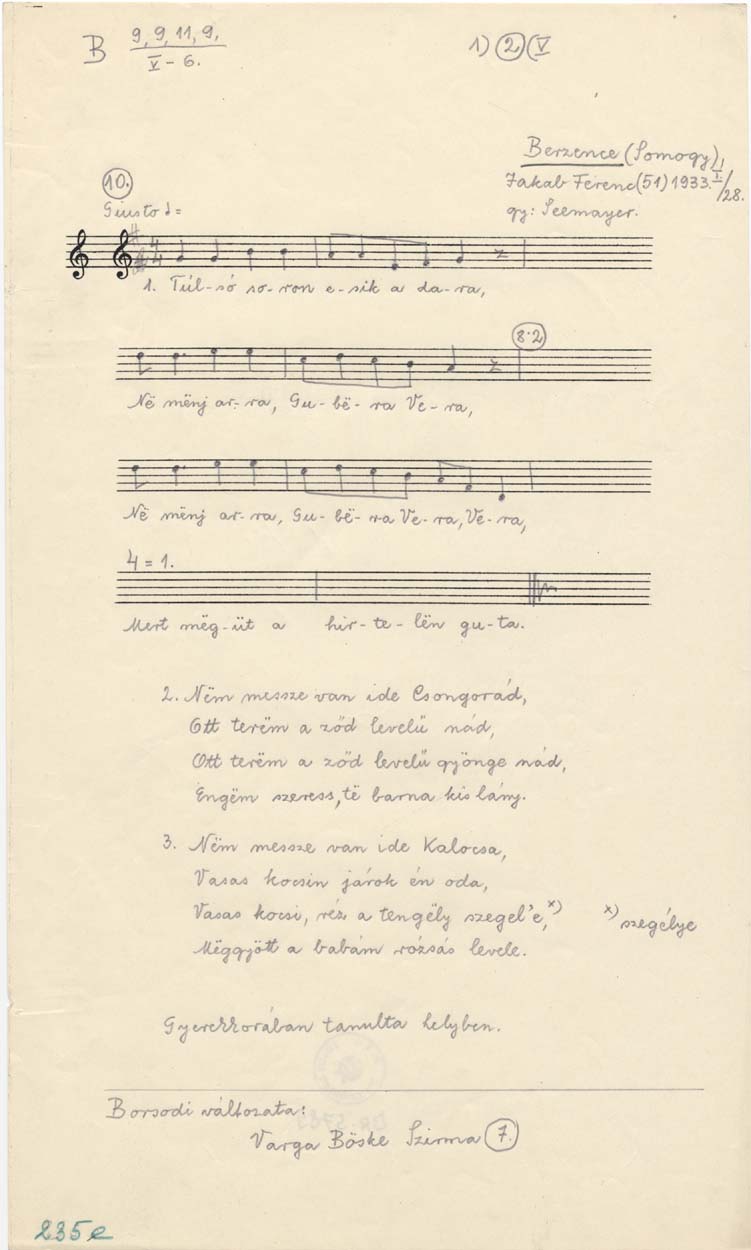 B 9, 9, 11, 9.
V – 6.
1) 2 (V
Berzence (Somogy)
Jakab Ferenc (51) 1933. I/28.
gy: Seemayer.
10.
Giusto ♩=
4
4
1. Túl-só so-ron e-sik a da-ra,
8·2
Në mënj ar-ra, Gu-bë-ra Ve-ra,
Në mënj ar-ra, Gu-bë-ra Ve-ra, Ve-ra,
4 = 1.
Mert mëg-üt a hir-te-lën gu-ta.
2. Nëm messze van ide Csongorád,
Ott terëm a ződ levelű nád,
Ott terëm a ződ levelű gyönge nád,
Engëm szeress, të barna kis lány.
3. Nëm messze van ide Kalocsa,
Vasas kocsin járok én oda,
Vasas kocsi, réz a tengëly szegel'e, x) x) szegélye
Mëggyött a babám rózsás levele.
Gyerekkorában tanulta helyben.
Borsodi változata:
Varga Böske Szirma 7.
235e